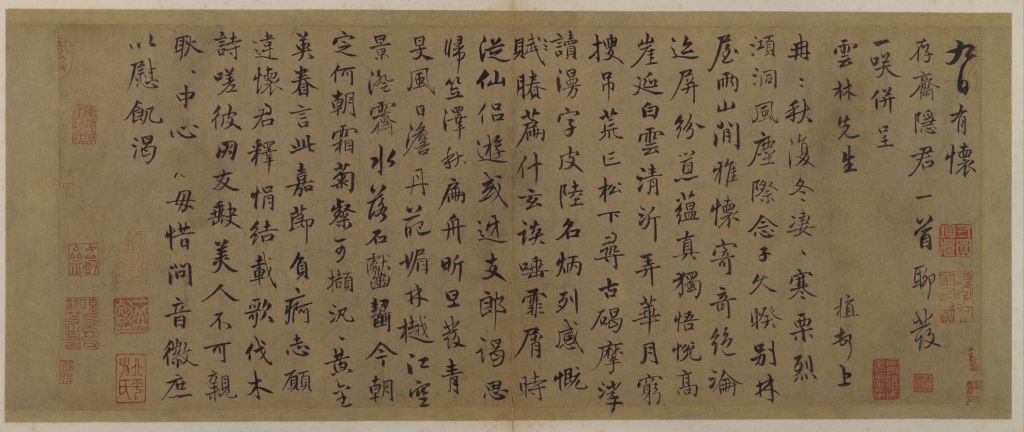 九日有懷
存齋隱君一首聊發
一咲併呈
雲林先生 植頓上
冉〻秋復冬凄〻寒栗烈
澒洞風塵際念子久睽別林
屋兩山間雅懷寄奇絕淪
迄屏紛蕴真獨悟悅高
崖延白雲清泝弄華月窮
搜吊荒亡松下尋古碣摩挲
讀漫字皮陸名炳列感慨
賦勝篇什玄談唾霏屑時
從仙侶遊或迓支郎謁思
歸笠澤秋扁舟昕旦發青
旻風日澹丹葩媚林樾江空
景澄霽水落石齒齧今朝
定何朝霜菊粲可擷況〻黃金
英眷言此嘉節負痾志願
違懷君釋悁結載歌伐木
詩嗟彼朋友缺美人不可親
耿〻中心〻毋惜問音徽庶
以慰飢渴